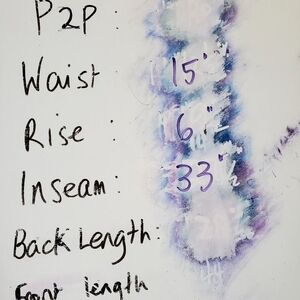 P2P:
Waist 15"
Rise : 6"
Inseam: 33"
Back Length:
Front length